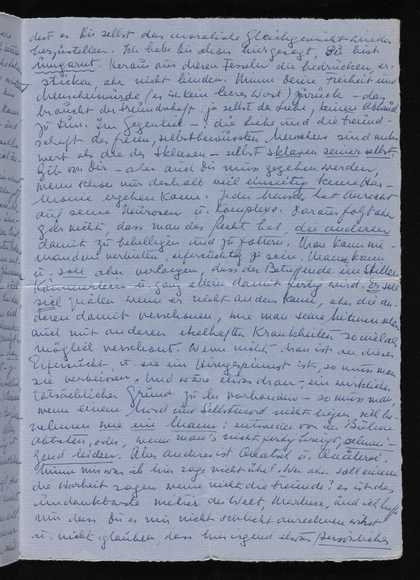 dest es Dir selbst das moralische Gleichgewicht wieder
herzustellen. Ich habe Dir schon mal gesagt, Du bist
Heraus aus diesen Fesseln die bedrücken, er-
sticken, aber nicht binden. Nimm Deine Freiheit und
Menschenwürde (es ist kein leeres Wort) zurück – das
braucht der Freundschaft, ja selbst der Liebe keinen Abbruch
zu tun. Im Gegenteil – ! die Liebe und die Freund-
schaft des freien, selbstbewussten Menschen sind mehr
wert als die des Sklaven – selbst Sklaven seiner selbst.
Gilt von Dir – aber auch Du musst gegeben werden,
wenn schon nur deshalb weil einseitig keine Har-
monie ergeben kann. Jeder Mensch hat Anrecht
auf seine Neurosen u. Komplexe. Daraus folgt aber
gar nicht, dass man das Recht hat, die anderen
damit zu behelligen und zu foltern. Man kann nie-
mandem verbieten, eifersüchtig zu sein. Man kann
u. soll aber verlangen, dass der Betreffende im stillen
Kämmerlein u. ganz allein damit fertig wird. Er soll
sich quälen wenn er nicht anders kann, aber die an-
deren damit verschonen, wie man seine Mitmenschen
auch mit anderen ekelhaften Krankheiten soviel als
möglich verschont. Wenn nicht man ist an dieser
Eifersucht, u. sie ein Hirngespinst ist, so muss man
sie verbeissen. Und wäre etwas dran, – ein wirklicher
tatsächlicher Grund zu ihr vorhanden – so muss man
wenn einem Mord und Selbstmord nicht liegen, sich be-
nehmen wie ein Mann: entweder von der Bühne
abtreten, oder, wenn man's nicht fertig bringt, schwei-
gend leiden. Alles andere ist Quatsch u. Hysterie!
Nimm mir was ich hier sage nicht übel! Wer aber soll einem
die Wahrheit sagen wenn nicht die Freunde? es ist das
undankbarste métier der Welt, Marlene, und ich hoffe
nur dass Du es mir nicht schlecht anrechnen wirst
u. nicht glauben, dass hier irgend etwas Persönliches